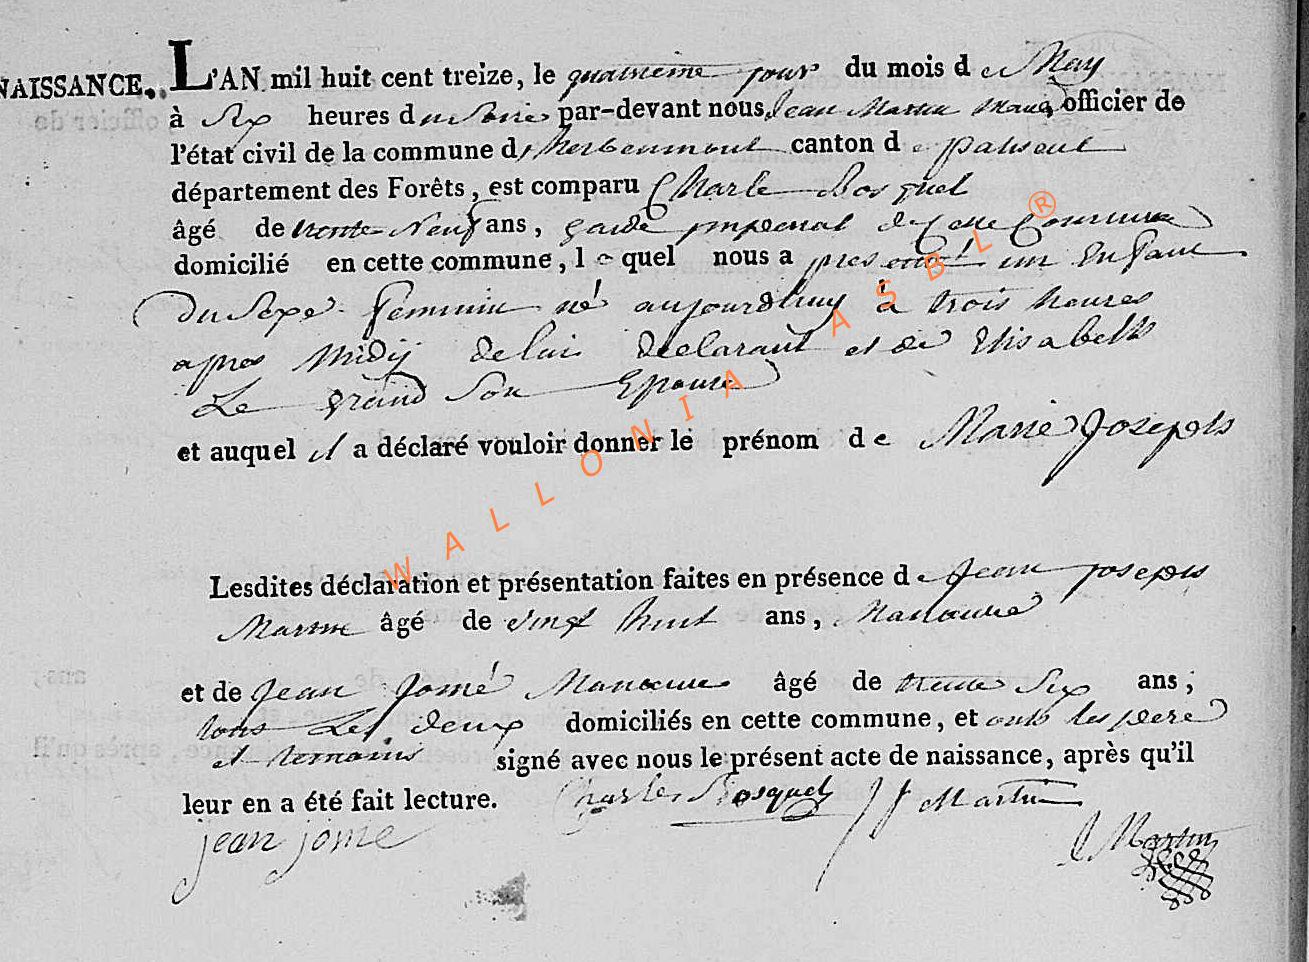 NAISSANCE. L'AN mil huit cent treize, le quatrieme jour du mois de May
à Six heures du soire par-devant nous, Jean Martin maire officier de
l'état civil de la commune d'herbeumont canton de paliseul
département des Forêts, est comparu Charle Bosquet
âgé de trente Neuf ans, garde imperial de Cette Commune
domicilié en cette commune, lequel nous a presenté un Enfant
Du Sexe feminin né aujourdhuy à trois heures
apres Midÿ de lui declarant et de Elisabeth
Le grand Son Epouse
et auquel il a déclaré vouloir donner le prénom de Marie Joseph
Lesdites déclaration et présentation faites en présence de Jean joseph
Martin âgé de vingt huit ans, Manouvre
et de Jean Jomé Manouvre âgé de trente Six ans;
tous Les deux domiciliés en cette commune, et onts les pere
et temoins signé avec nous le présent acte de naissance, après qu'il
leur en a été fait lecture. Charles Bosquet JJ Martin
jean jome J Martin
WALLONIA ASBL ®